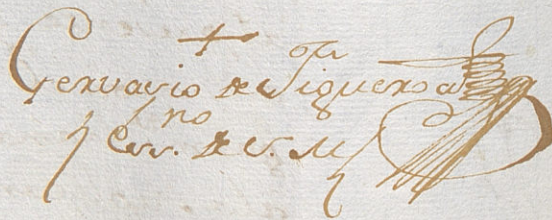 Gervasio de Figueroa
Essno. de S. M.